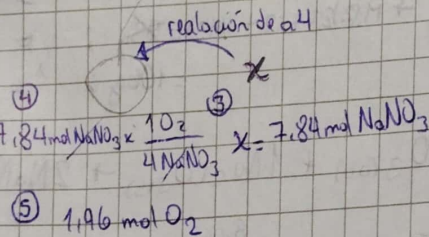 realación de a 4
x
④
7,84 mol NaNO₃ × 1O₂ / 4NaNO₃
③
x = 7,84 mol NaNO₃
⑤ 1,96 mol O₂